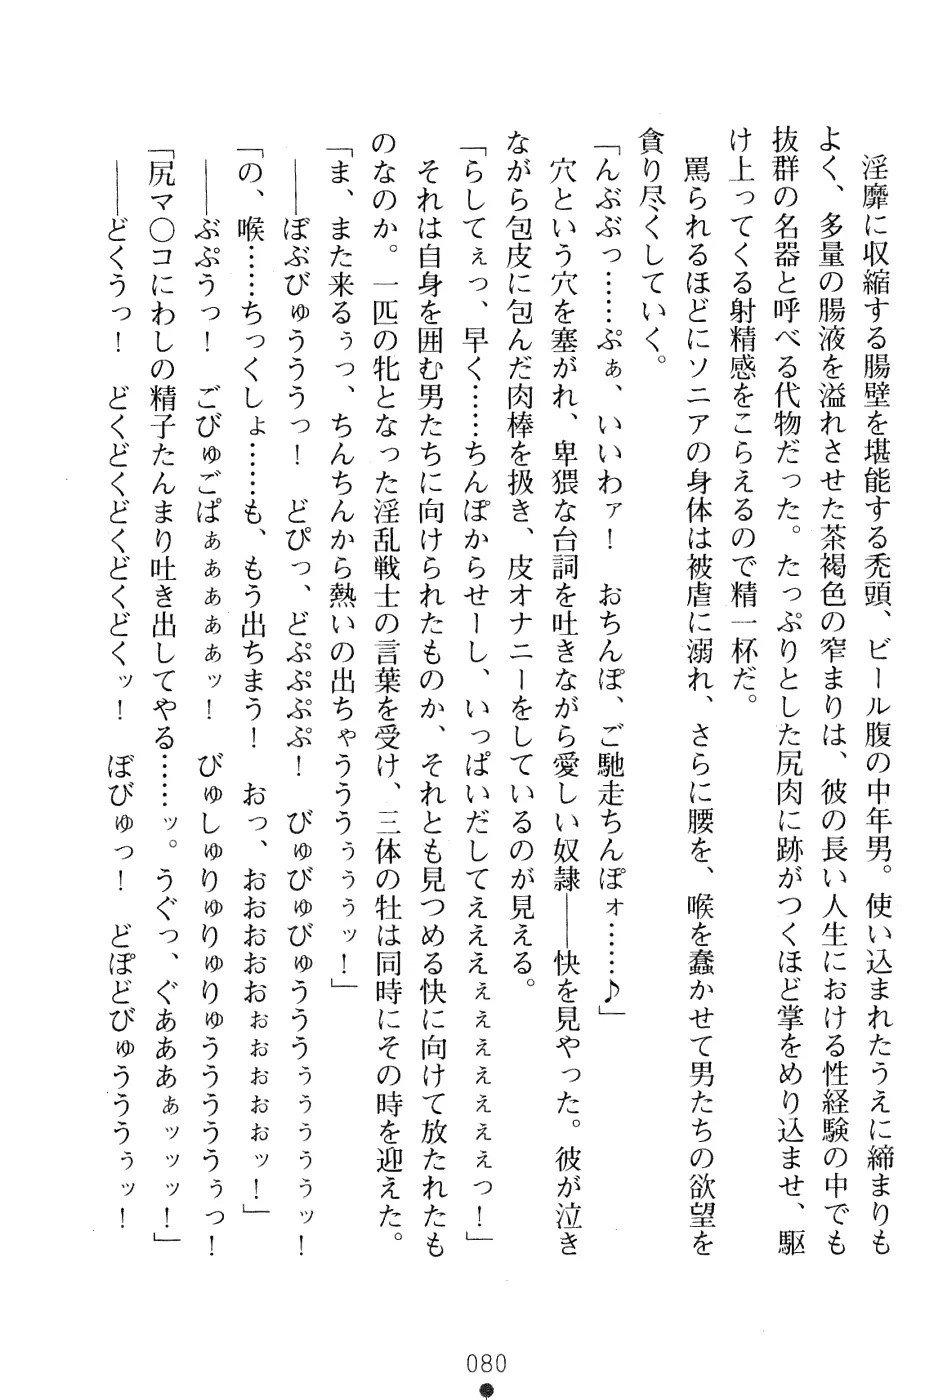 淫靡に収縮する腸壁を堪能する禿頭、ビール腹の中年男。使い込まれたうえに締まりも
よく、多量の腸液を溢れさせた茶褐色の窄まりは、彼の長い人生における性経験の中でも
抜群の名器と呼べる代物だった。たっぷりとした尻肉に跡がつくほど掌をめり込ませ、駆
け上ってくる射精感をこらえるので精一杯だ。
罵られるほどにソニアの身体は被虐に溺れ、さらに腰を、喉を蠢かせて男たちの欲望を
貪り尽くしていく。
「んぶぶっ……ぷぁ、いいわァ！　おちんぽ、ご馳走ちんぽォ……♪」
穴という穴を塞がれ、卑猥な台詞を吐きながら愛しい奴隷――快を見やった。彼が泣き
ながら包皮に包んだ肉棒を扱き、皮オナニーをしているのが見える。
「らしてぇっ、早く……ちんぽからせーし、いっぱいだしてえええぇぇぇぇぇっ！」
それは自身を囲む男たちに向けられたものか、それとも見つめる快に向けて放たれたも
のなのか。一匹の牝となった淫乱戦士の言葉を受け、三体の牡は同時にその時を迎えた。
「ま、また来るぅっ、ちんちんから熱いの出ちゃうううぅぅぅッ！」
――ぼぶびゅううっ！　どぴっ、どぷぷぷ！　びゅびゅびゅうううぅぅぅぅッ！
「の、喉……ちっくしょ……も、もう出ちまう！　おっ、おおおおおぉぉぉぉッ！」
――ぶぷうっ！　ごびゅごぱぁぁぁぁぁッ！　びゅしゅりゅりゅりゅうううううぅっ！
「尻マ〇コにわしの精子たんまり吐き出してやる……ッ。うぐっ、ぐあああぁッッッ！」
――どくうっ！　どくどくどくどくッ！　ぼびゅっ！　どぽどびゅううううぅッ！
080